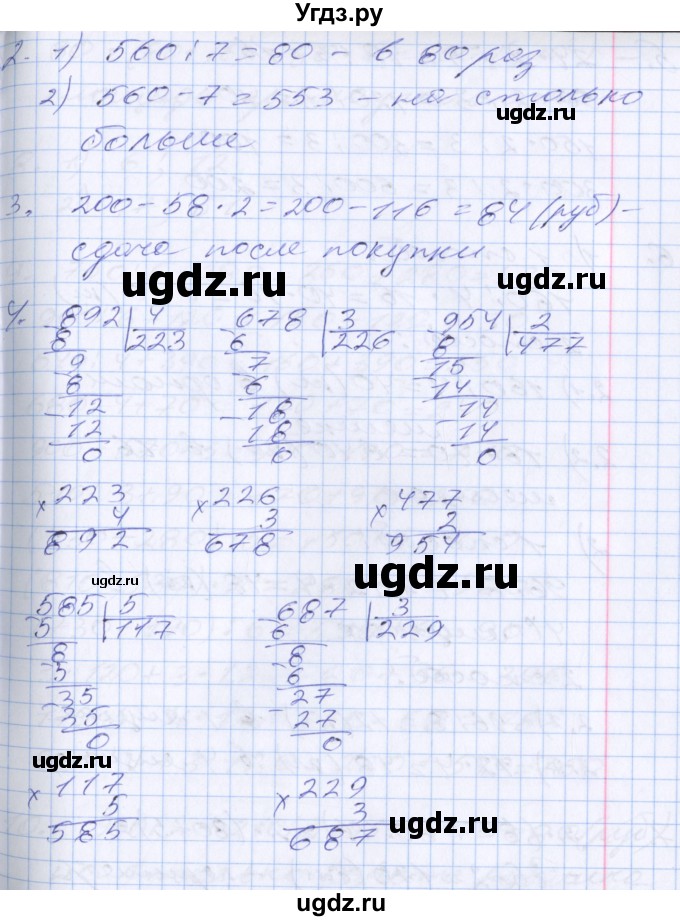 Угдз.ру
2. 1) 560 : 7 = 80 - в 80 раз
2) 560 - 7 = 553 - на столько
больше
ugdz.ru
3. 200 - 58 · 2 = 200 - 116 = 84 (руб) -
сдача после покупки
ugdz.ru
ugdz.ru
4. 892 | 4    678 | 3    954 | 2
8 | 223    6 | 226    8 | 477
9    7    15
8    6    14
12    18    14
12    18    14
0    0    0
ugdz.ru ugdz.ru
× 223    × 226    × 477
4    3    2
892    678    954
ugdz.ru
ugdz.ru
585 | 5    687 | 3
5 | 117    6 | 229
ugdz.ru
8    8
5    6
35    27
35    27
0    0
ugdz.ru
× 117    × 229
5    3
585    687
ugdz.ru
ugdz.ru
Угдз.ру